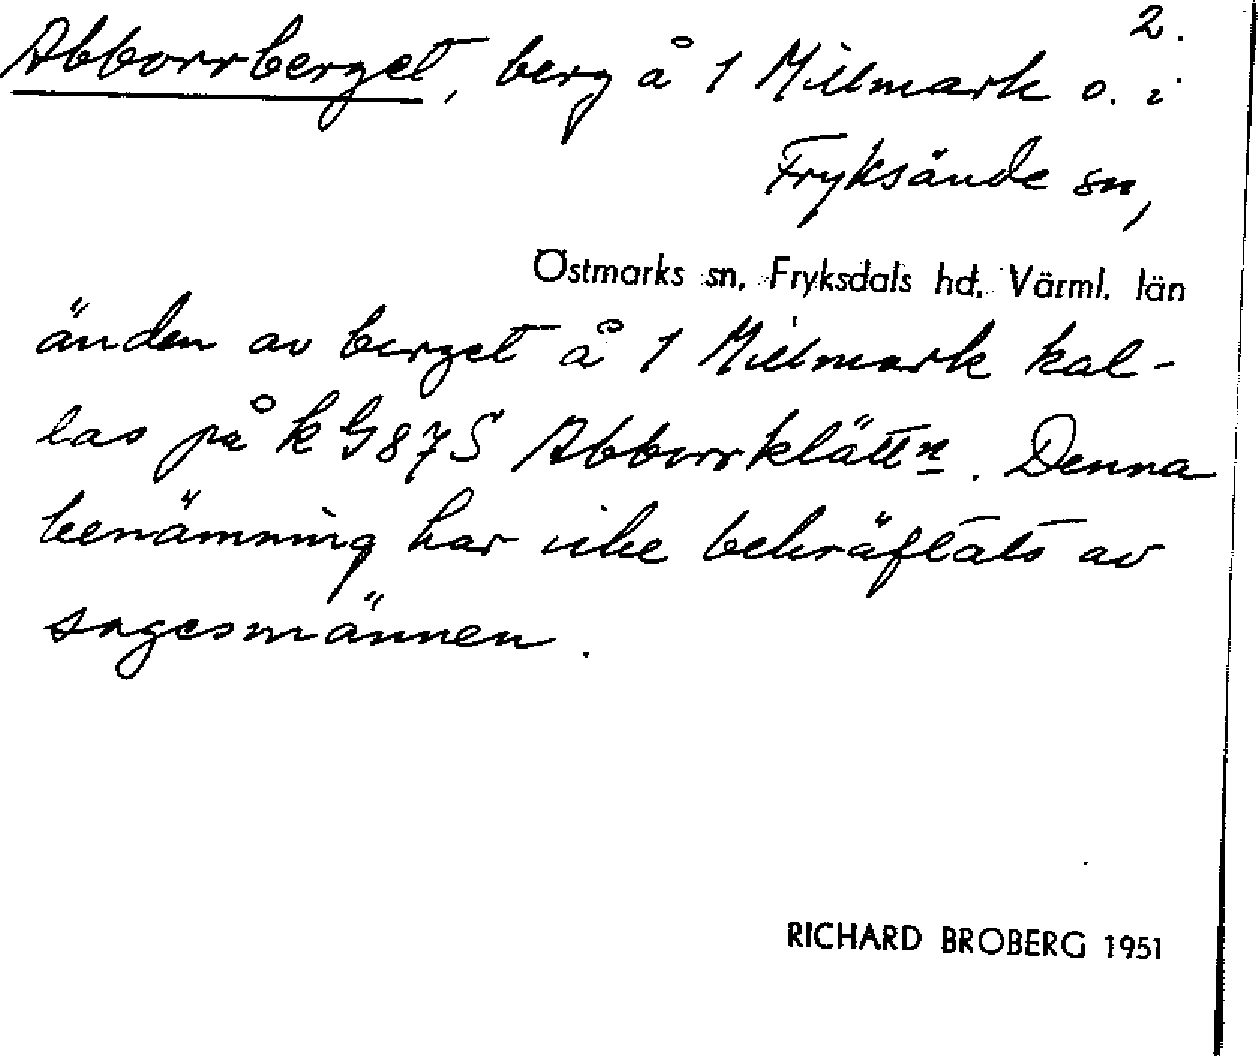 2.
Abborrberget, berg å 1 Millmark o. i
Fryksände sn,
Östmarks sn, Fryksdals hd. Värml. län
änden av berget å 1 Millmark kal-
las på k G87S Abborrklätt<u>n</u>. Denna
benämning har icke bekräftats av
sagesmännen.
RICHARD BROBERG 1951